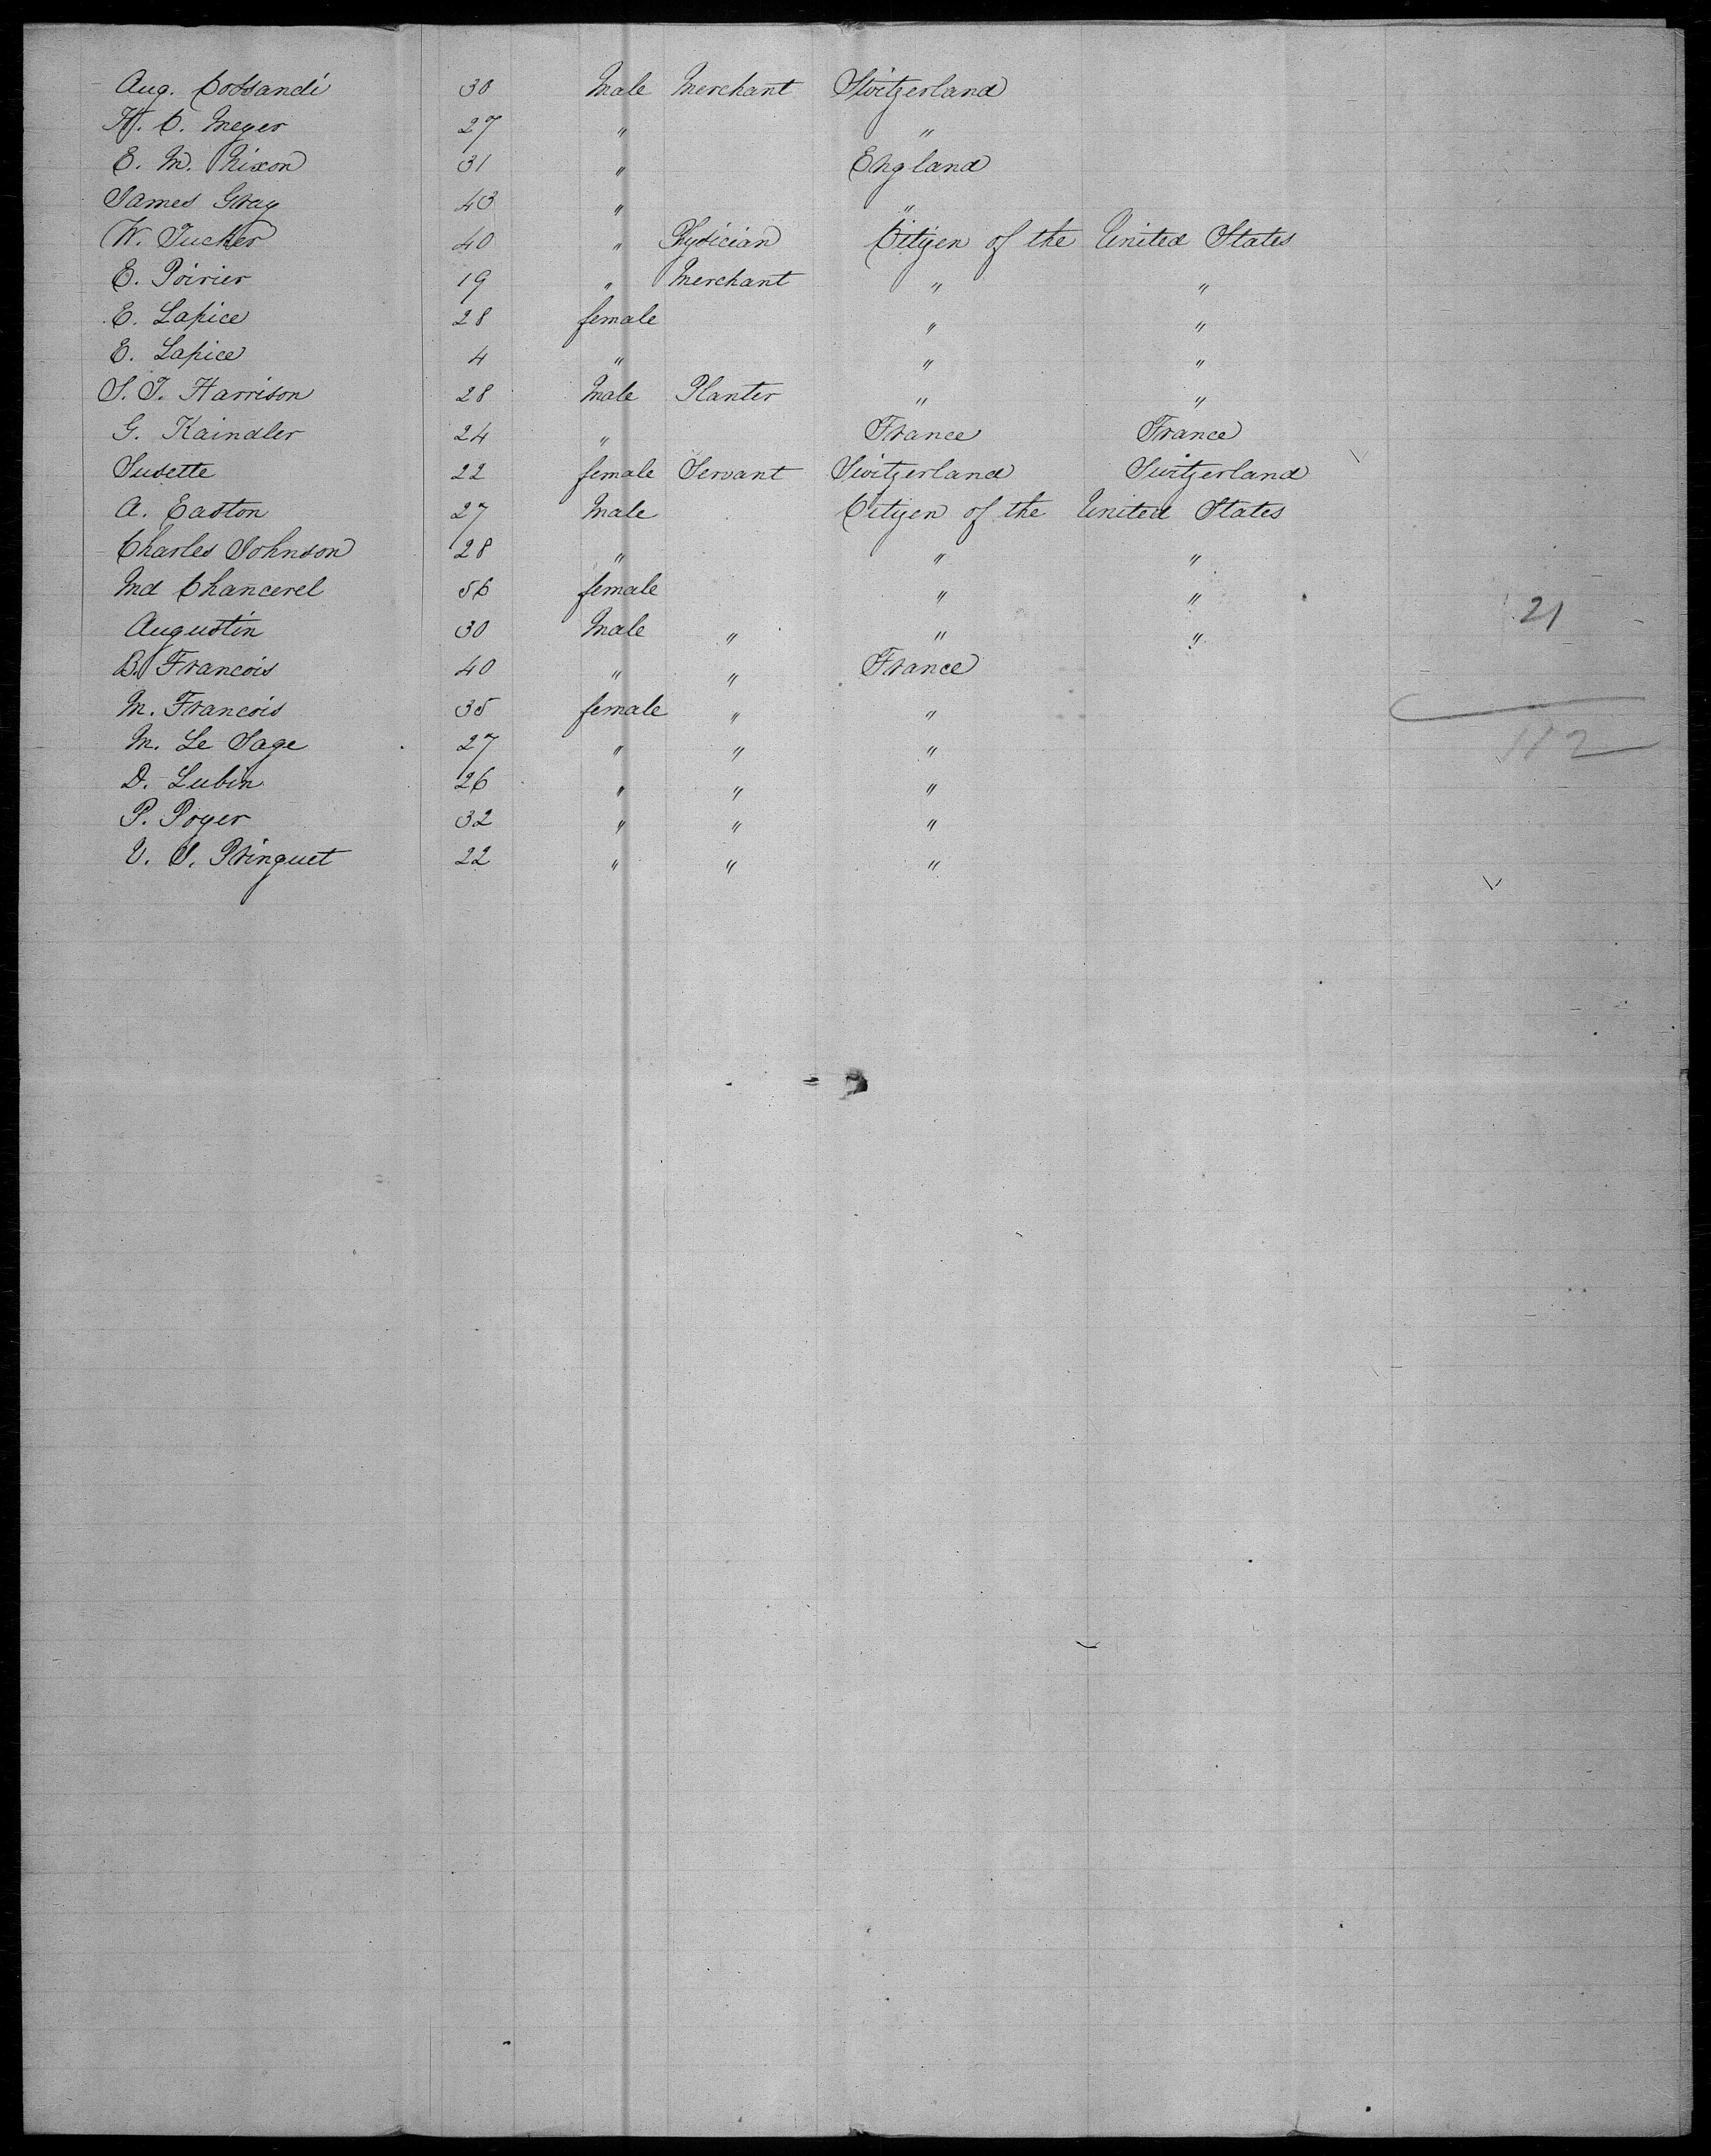 Aug. Cossandi 30 Male Merchant Switzerland
H. C. Meyer 27 " "
E. M. Nixon 31 " England
James Gray 43 " "
W. Tucker 40 " Physician Citizen of the United States
E. Poirier 19 " Merchant " "
E. Lapice 28 female " "
E. Lapice 4 " " "
S. T. Harrison 28 Male Planter " "
G. Kaindler 24 " France France
Susette 22 female Servant Switzerland Switzerland
A. Easton 27 Male Citizen of the United States
Charles Johnson 28 " " "
Md Chancerel 56 female " "
Augustin 30 Male " " " 21
B. Francois 40 " " France
M. Francois 35 female " "
M. Le Sage 27 " " " 112
D. Lubin 26 " " "
P. Poyer 32 " " "
V. S. Pringuet 22 " " "